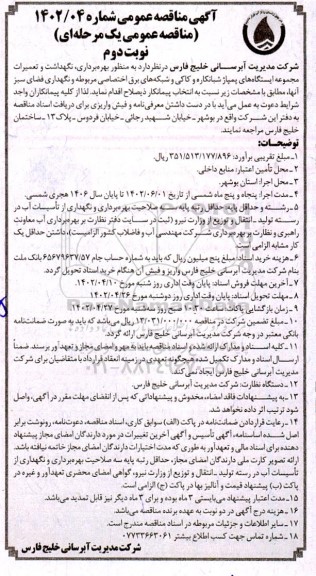 آگهی مناقصه عمومی شماره ۱۴۰۲/۰۴
(مناقصه عمومی یک مرحله‌ای)
نوبت دوم
شرکت مدیریت آبرسانی خلیج فارس در نظر دارد به منظور بهره‌برداری، نگهداشت و تعمیرات
مجموعه ایستگاه‌های پمپاژ شبانکاره و کاکی و شبکه‌های برق اختصاصی مربوطه و نگهداری فضای سبز
آنها، مطابق با مشخصات زیر نسبت به انتخاب پیمانکار ذیصلاح اقدام نماید. لذا از کلیه پیمانکاران واجد
شرایط دعوت به عمل می‌آید با در دست داشتن معرفی‌نامه و فیش واریزی برای دریافت اسناد مناقصه
به دفتر این شرکت واقع در بوشهر - خیابان شهید رجائی - خیابان فردوس - پلاک ۱۳ - ساختمان
خلیج فارس مراجعه نمایند.
توضیحات:
۱- مبلغ تقریبی برآورد: ۳۵۱/۵۱۳/۱۷۷/۸۹۶ ریال.
۲- محل تأمین اعتبار: منابع داخلی.
۳- محل اجرا: استان بوشهر.
۴- مدت اجرا: پنجاه و پنج ماه شمسی از تاریخ ۱۴۰۲/۰۶/۰۱ تا پایان سال ۱۴۰۶ هجری شمسی.
۵- رشته و حداقل پایه: حداقل رتبه پایه سه صلاحیت بهره‌برداری و نگهداری از تأسیسات آب در
رسته تولید، انتقال و توزیع از وزارت نیرو (ثبت در سایت دفتر نظارت بر بهره‌برداری آب معاونت
راهبری و نظارت بر بهره‌برداری شرکت مهندسی آب و فاضلاب کشور الزامیست)، داشتن حداقل یک
کار مشابه الزامی است.
۶- هزینه خرید اسناد: مبلغ پنج میلیون ریال که باید به شماره حساب جام ۶۵۶۷۹۶۳۷/۵۷ بانک ملت
بنام شرکت مدیریت آبرسانی خلیج فارس واریز و فیش آن هنگام خرید اسناد تحویل گردد.
۷- آخرین مهلت فروش اسناد: پایان وقت اداری روز شنبه مورخ ۱۴۰۲/۰۴/۱۰.
۸- مهلت تحویل اسناد: پایان وقت اداری روز دوشنبه مورخ ۱۴۰۲/۰۴/۲۶.
۹- زمان بازگشایی پاکات: ساعت ۱۰:۳۰ صبح روز سه‌شنبه مورخ ۱۴۰۲/۰۴/۲۷.
۱۰- مبلغ تضمین شرکت در مناقصه ۱۳/۰۳۱/۰۰۰/۰۰۰ ریال می‌باشد که باید به صورت ضمانت‌نامه
بانکی معتبر در وجه شرکت مدیریت آبرسانی خلیج فارس ارائه گردد.
۱۱- کلیه اسناد و مدارک ارائه شده و اسناد مناقصه باید به مهر و امضای مجاز و تعهدآور برسند. ضمناً
ارسال اسناد و مدارک تکمیل شده هیچگونه تعهدی در زمینه انعقاد قرارداد با متقاضیان برای شرکت
مدیریت آبرسانی خلیج فارس ایجاد نمی‌کند.
۱۲- دستگاه نظارت: شرکت مدیریت آبرسانی خلیج فارس.
۱۳- به پیشنهادات فاقد امضا، مخدوش و پیشنهاداتی که پس از انقضای مهلت مقرر در آگهی، واصل
شود ترتیب اثر داده نخواهد شد.
۱۴- رعایت قرار دادن ضمانت‌نامه در پاکت (الف) سوابق کاری، اسناد مناقصه، دعوت‌نامه، رونوشت برابر
اصل شده اساسنامه، آگهی تأسیس و آگهی آخرین تغییرات در مورد دارندگان امضای مجاز پیشنهاد
دهنده برای اسناد مالی و تعهدآور به طوری که مدت اختیارات دارندگان امضای مجاز خاتمه نیافته باشد.
ارائه تصویر کارت ملی دارندگان امضای مجاز، حداقل رتبه پایه سه صلاحیت بهره‌برداری و نگهداری از
تأسیسات آب در رسته تولید، انتقال و توزیع از وزارت نیرو، گواهی امضای محضری تعهدآور و غیره در
پاکت (ب) و پیشنهاد قیمت و آنالیز بها در پاکت (ج) الزامی است.
۱۵- مدت اعتبار پیشنهاد می‌بایستی ۳ ماه بوده و برای ۳ ماه دیگر نیز قابل تمدید می‌باشد.
۱۶- هزینه درج آگهی در دو نوبت به عهده برنده مناقصه می‌باشد.
۱۷- سایر اطلاعات و جزئیات مربوطه در اسناد مناقصه مندرج است.
۱۸- شماره تماس جهت کسب اطلاع بیشتر ۰۷۷۳۳۶۶۳۰۶۱
شرکت مدیریت آبرسانی خلیج فارس